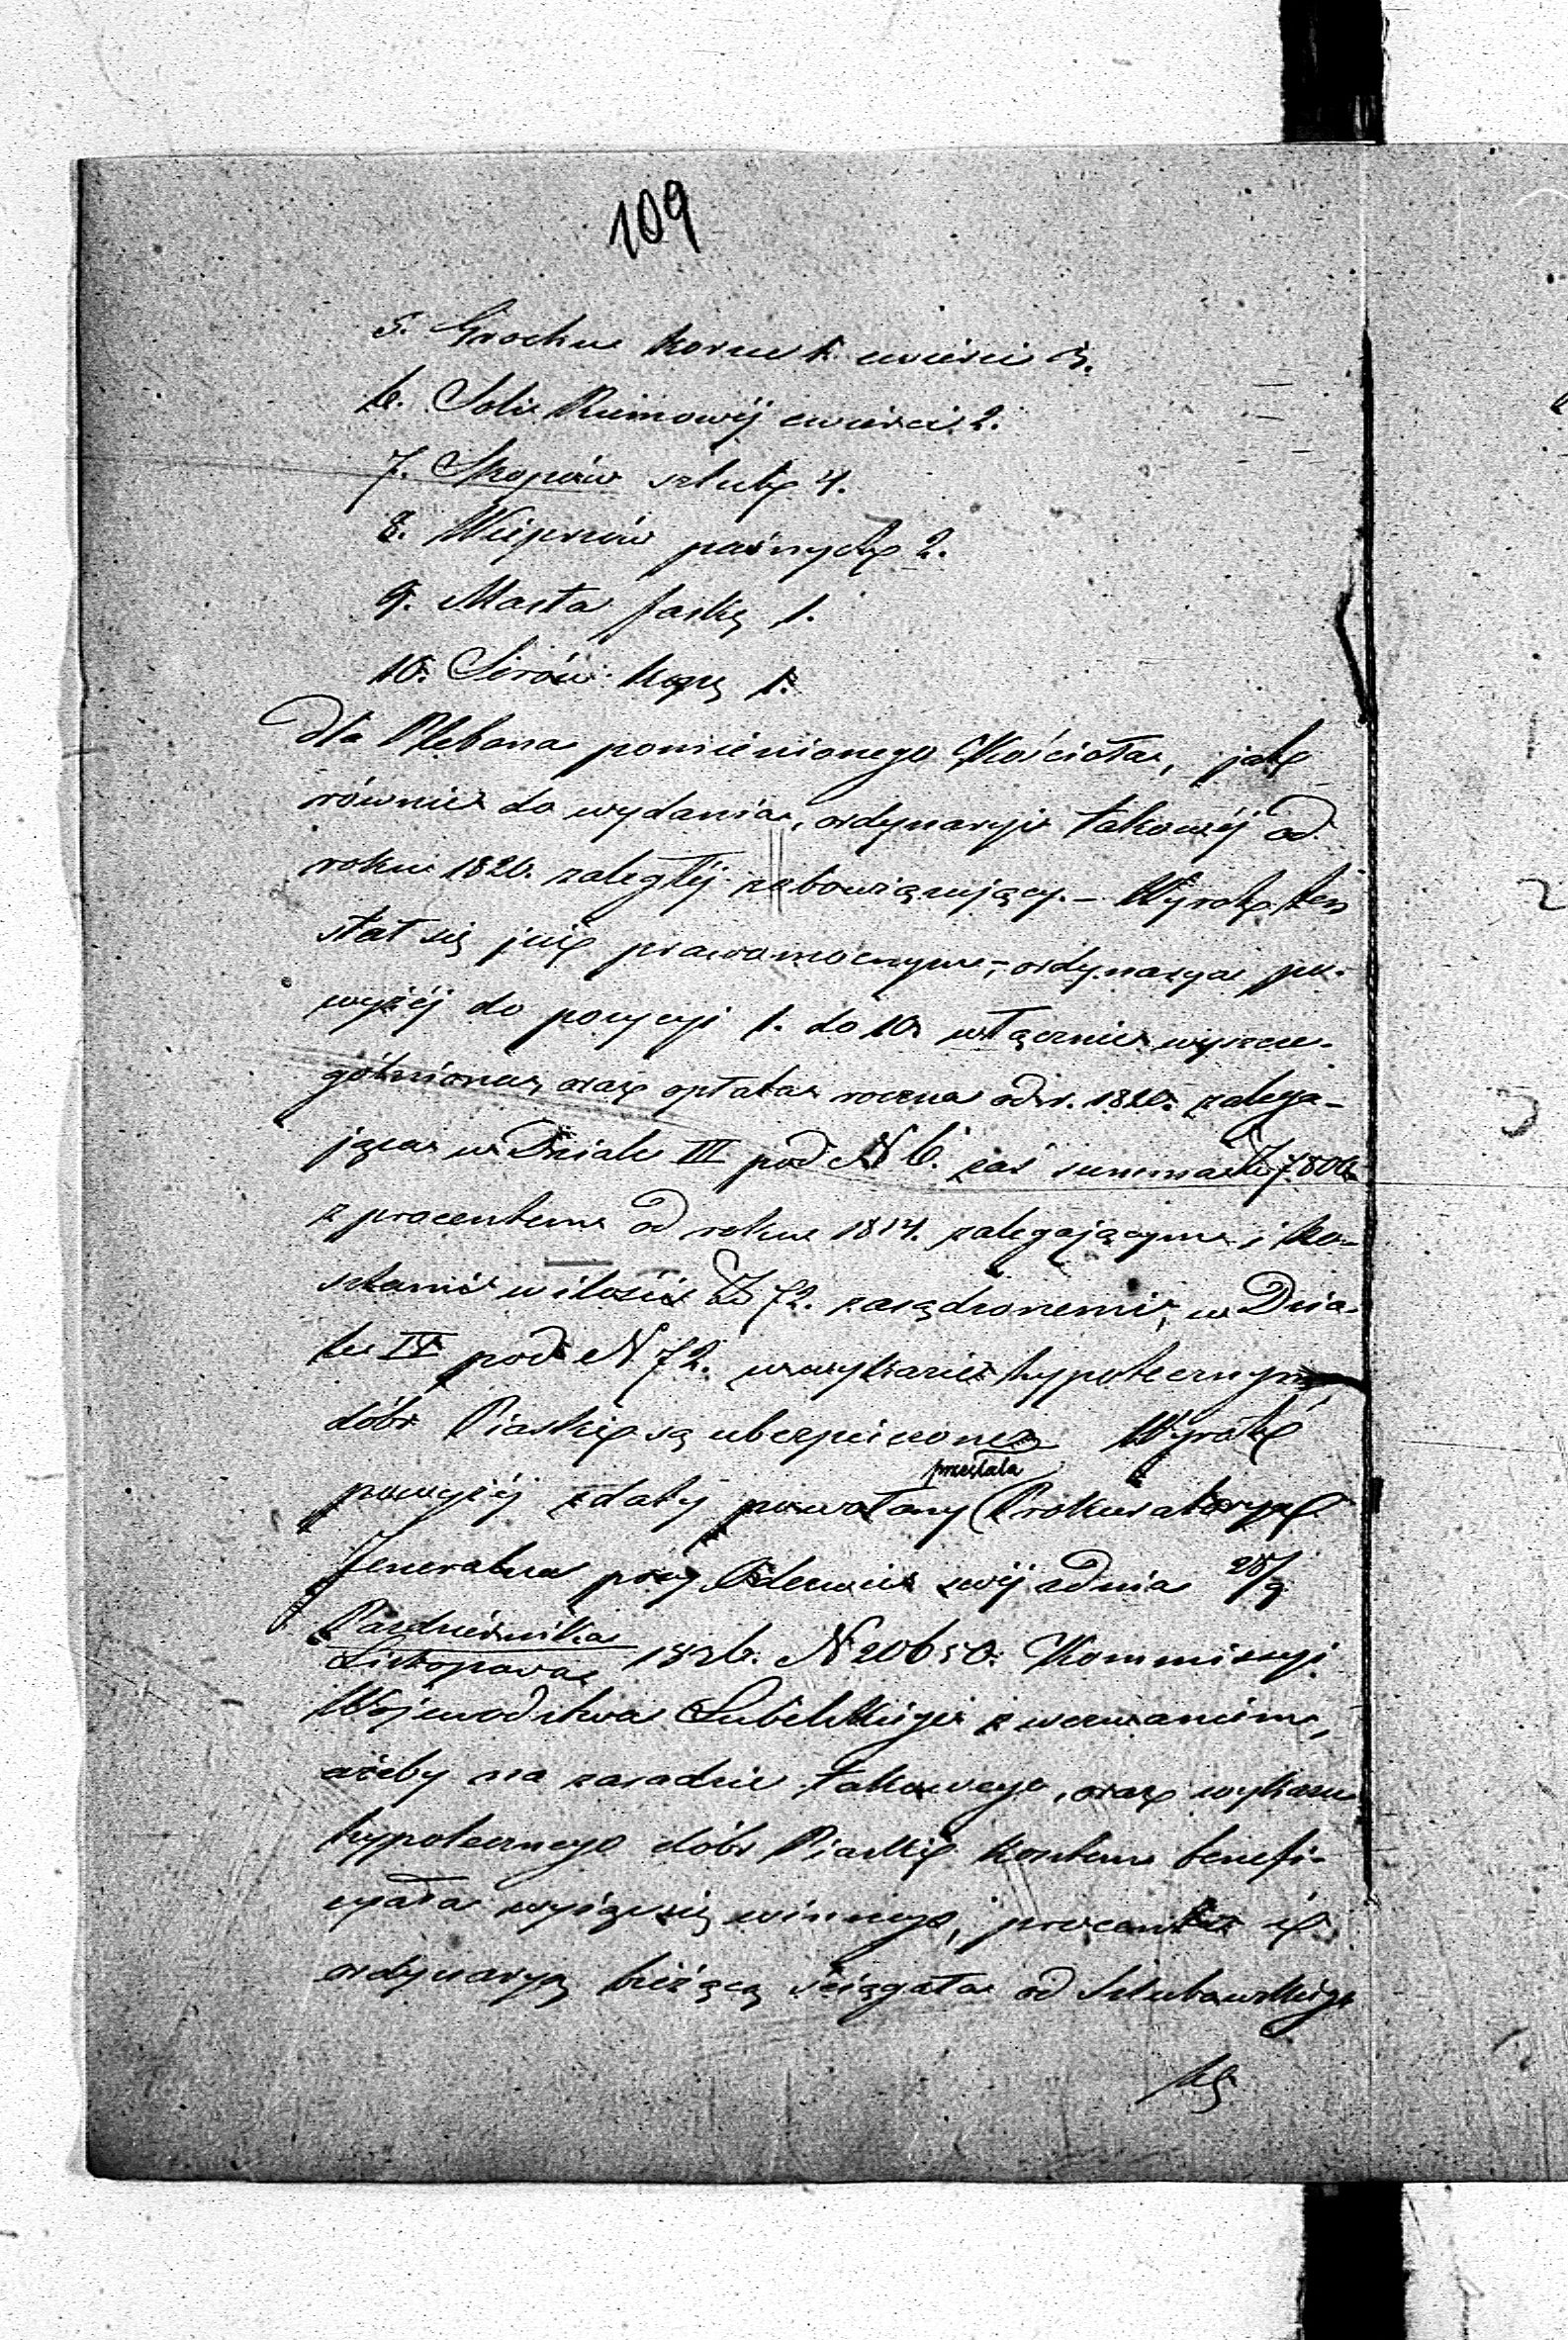 109
5. Grochu korcu 1. ćwierci 3.
6. Soli Rumowéj ćwierci 2.
7. Skopów sztuk 4.
8. Wieprzów paśnych 2.
9. Masła faskę 1.
10. Sérów kopę 1.
dla Plebana pomienionego Kościoła, jak
równie do wydania, ordynaryi takowéj od
roku 1820. zaległéj zobowiązujący. – Wyrok ten
stał się już prawomocnym; ordynarya po-
wyżéj do pozycyi 1. do 10. włącznie wyszcze-
gólniona, oraz opłata roczna od r. 1820. zalega-
jąca w Dziale III pod N 6. zaś summa Zł 7800
z procentem od roku 1814. zalegającym i ko-
sztami w ilości Zł 72. zasądzonemi, w Dzia-
le IV pod N 72. w wykazie hypotecznym
dóbr Piaski są ubezpieczone. Wyrok
przesłała
powyżéj z daty powołany Prokuratorya
Jeneralna przy Odezwie swéj z dnia 28/9
Października
Listopada 1826. N 20650. Kommissyi
Województwa Lubelskiego z wezwaniem,
ażeby na zasadzie takowego, oraz wykazu
hypotecznego dóbr Piaski kosztem benefi-
cyata wyiąć się winnego, procenta i
ordynaryą bieżącą ściągała od